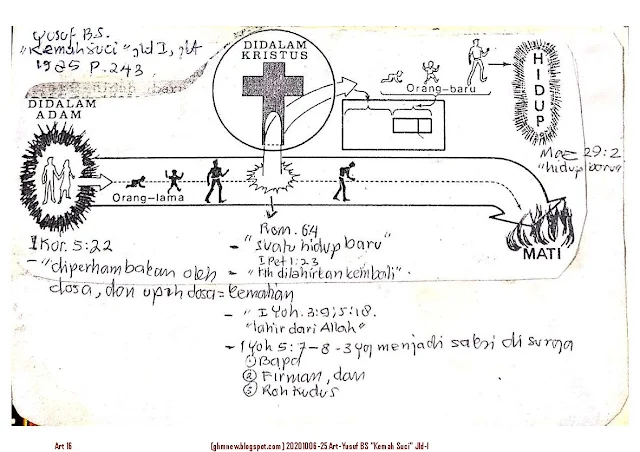 Yusuf B.S.
"Kemah Suci" jld I, glt
1985 P.243
DIDALAM
KRISTUS
Orang-baru
HIDUP
DIDALAM
ADAM
29:2
"hidup
Orang-lama
MATI
I Kor. 5:22
- "diperhambakan oleh
dosa, dan upah dosa =
Rom. 64
- "suatu hidup baru"
I Pet 1:23
- "tlh dilahirkan kembali".
- " I Yoh. 3:9; 5:18.
"lahir dari Allah"
- I Yoh 5:7-8-3 yg menjadi saksi di surga
① Bapa
② Firman, dan
③ Roh Kudus
Art 16
(ghmnew.blogspot.com) 20201006-25 Art-Yusuf BS "Kemah Suci" Jld-I